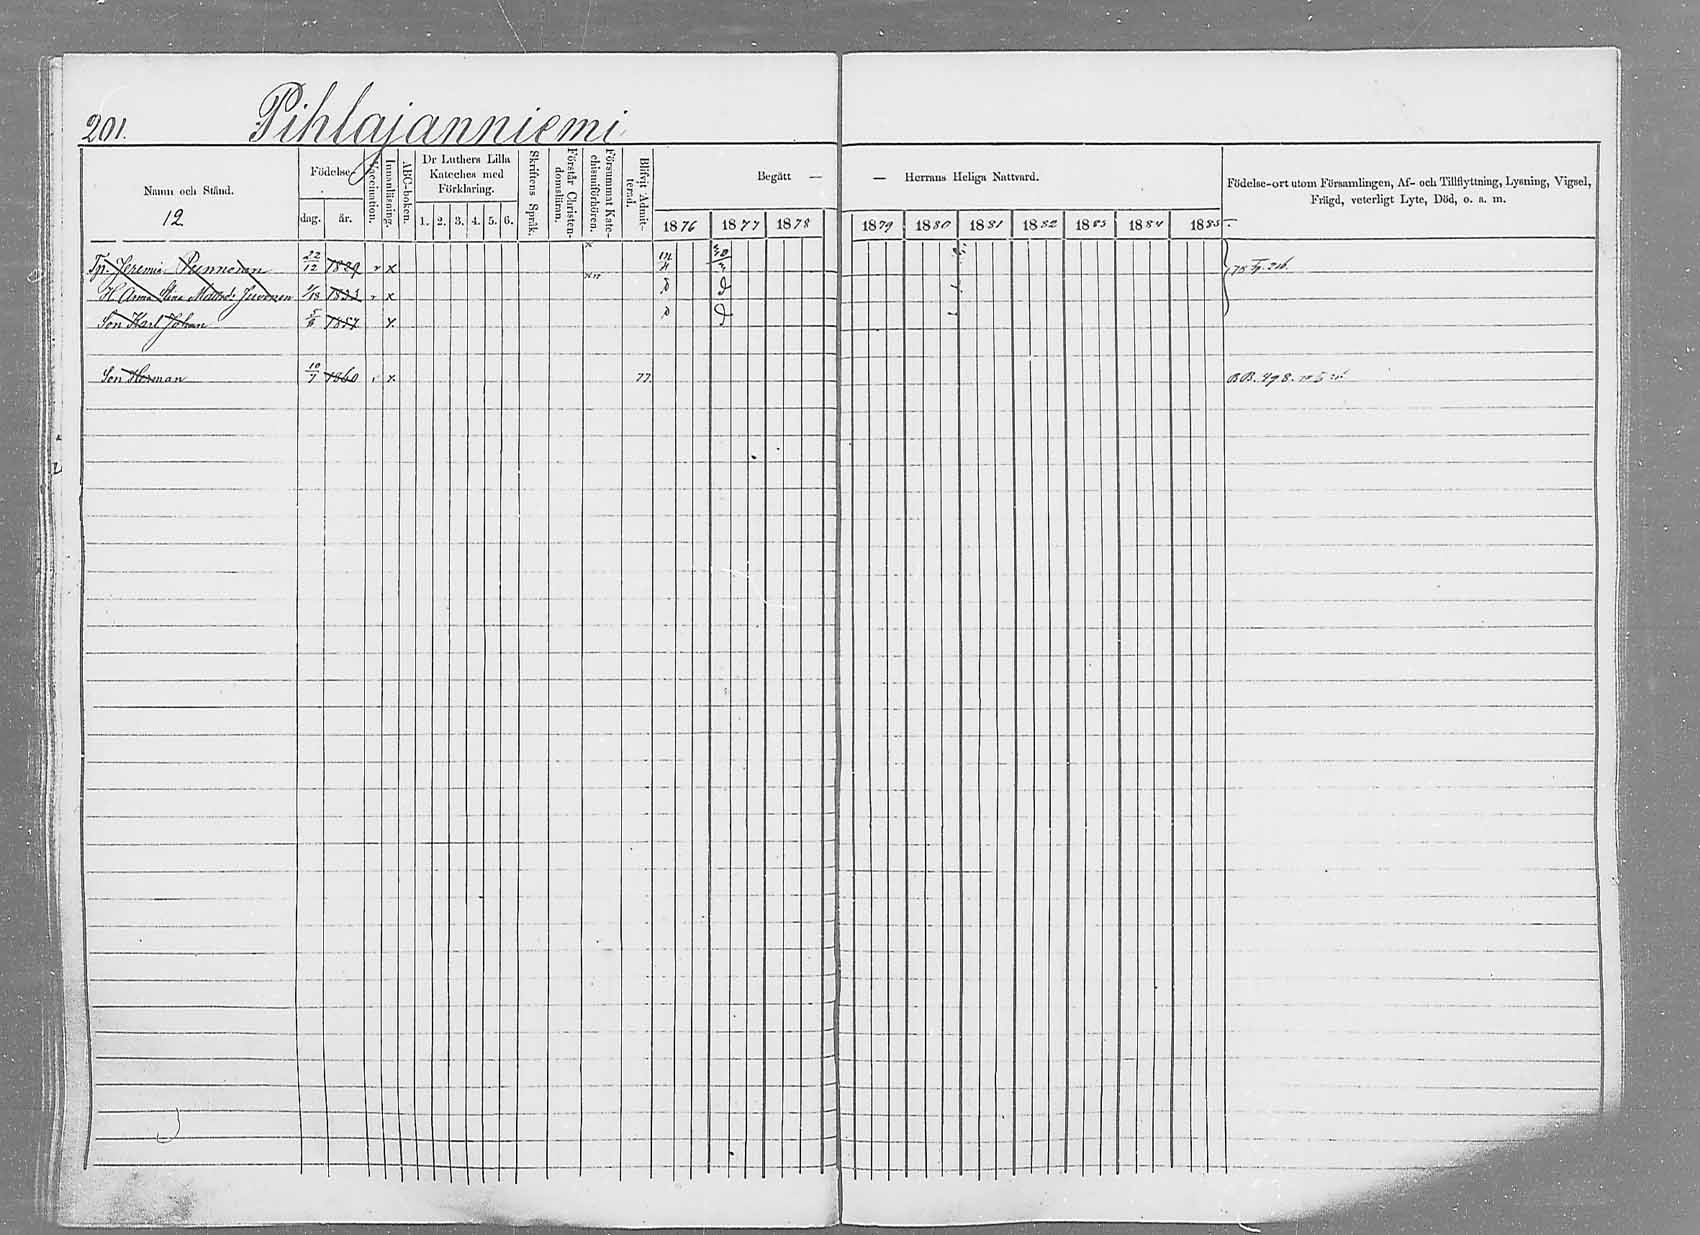 201.
Pihlajanniemi
Namn och Stånd.
12
Födelse-
dag.
år.
Vaccination.
Innanläsning.
ABC-boken.
Dr Luthers Lilla
Kateches med
Förklaring.
1. 2. 3. 4. 5. 6.
Skriftens Språk.
Förstår Christen-
domsläran.
Försummat Kate-
chismiförhören.
Blifvit Admit-
terad.
Begått —
1876 1877 1878
— Herrans Heliga Nattvard.
1879 1880 1881 1882 1883 1884 1885
Födelse-ort utom Församlingen, Af- och Tillflyttning, Lysning, Vigsel,
Frägd, veterligt Lyte, Död, o. a. m.
Jeremias 22/12 1829 x
H. Anna Stina 1833 x
Son Karl Johan 1857 x
Son Herman 10/7 1860 x 77 BB. 498.